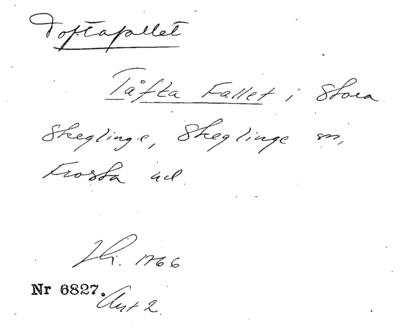 Toftafallet
Tåfta Fallet i Stora
Skeglinge, Skeglinge sn,
Frosta hd.
1766
Nr 6827.
Ant 2.